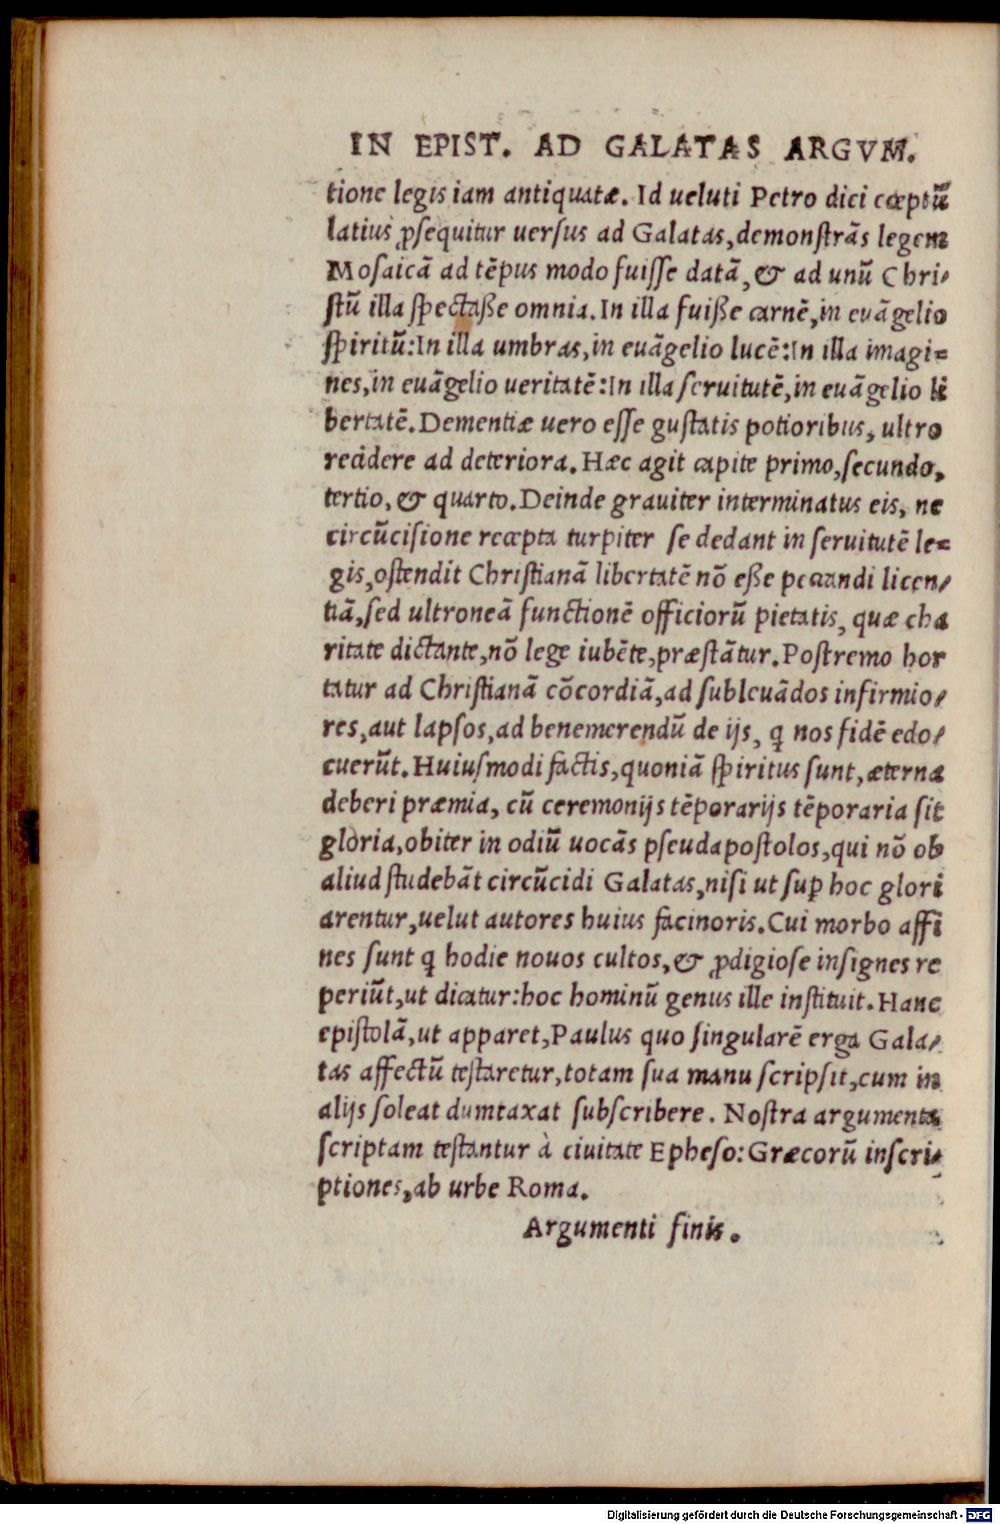 IN EPIST. AD GALATAS ARGVM.
tione legis iam antiquatæ. Id ueluti Petro dici cœptũ
latius ꝓsequitur uersus ad Galatas, demonstrãs legem
Mosaicã ad tẽpus modo fuisse datã, & ad unũ Chri-
stũ illa spectaße omnia. In illa fuiße carnẽ, in euãgelio
spiritũ: In illa umbras, in euãgelio lucẽ: In illa imagi=
nes, in euãgelio ueritatẽ: In illa seruitutẽ, in euãgelio li
bertatẽ. Dementiæ uero esse gustatis potioribus, ultro
recidere ad deteriora. Hæc agit capite primo, secundo,
tertio, & quarto. Deinde grauiter interminatus eis, ne
circũcisione recepta turpiter se dedant in seruitutẽ le=
gis, ostendit Christianã libertatẽ nõ eße peccandi licen-
tiã, sed ultroneã functionẽ officiorũ pietatis, quæ cha
ritate dictante, nõ lege iubẽte, præstãtur. Postremo hor
tatur ad Christianã cõcordiã, ad subleuãdos infirmio-
res, aut lapsos, ad benemerendũ de ijs, q̃ nos fidẽ edo-
cuerũt. Huiusmodi factis, quoniã spiritus sunt, æterna
deberi præmia, cũ ceremonijs tẽporarijs tẽporaria sit
gloria, obiter in odiũ uocãs pseudapostolos, qui nõ ob
aliud studebãt circũcidi Galatas, nisi ut suꝑ hoc glori
arentur, uelut autores huius facinoris. Cui morbo affi
nes sunt q̃ hodie nouos cultos, & ꝓdigiose insignes re
periũt, ut dicatur: hoc hominũ genus ille instituit. Hanc
epistolã, ut apparet, Paulus quo singularẽ erga Gala-
tas affectũ testaretur, totam sua manu scripsit, cum in
alijs soleat dumtaxat subscribere. Nostra argumenta
scriptam testantur à ciuitate Epheso: Græcorũ inscri-
ptiones, ab urbe Roma.
Argumenti finis.
Digitalisierung gefördert durch die Deutsche Forschungsgemeinschaft - DFG